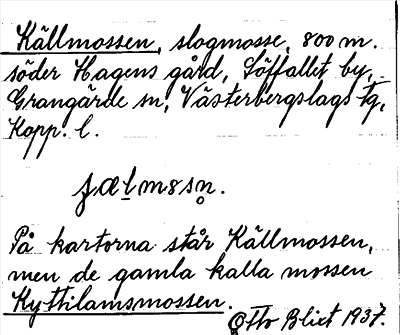 Källmossen, slogmosse, 800 m.
söder Hagens gård, Söffallet by,
Grangärde sn, Västerbergslags tg,
Kopp. l.
På kartorna står Källmossen,
men de gamla kalla mossen
Kyttilamsmossen.
Otto Blixt 1937.